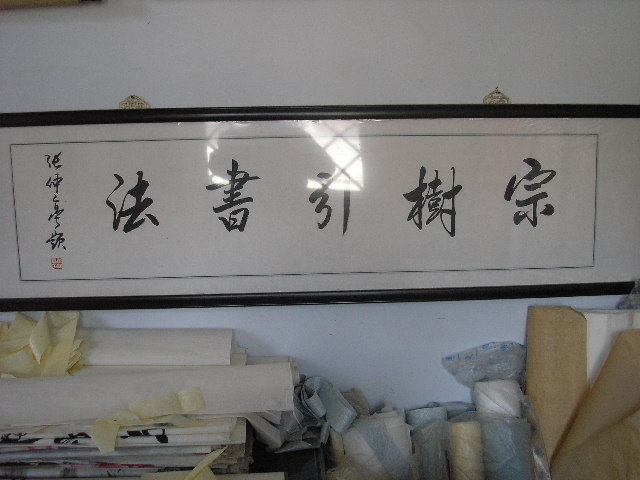 宗樹引書法
張仲亭題